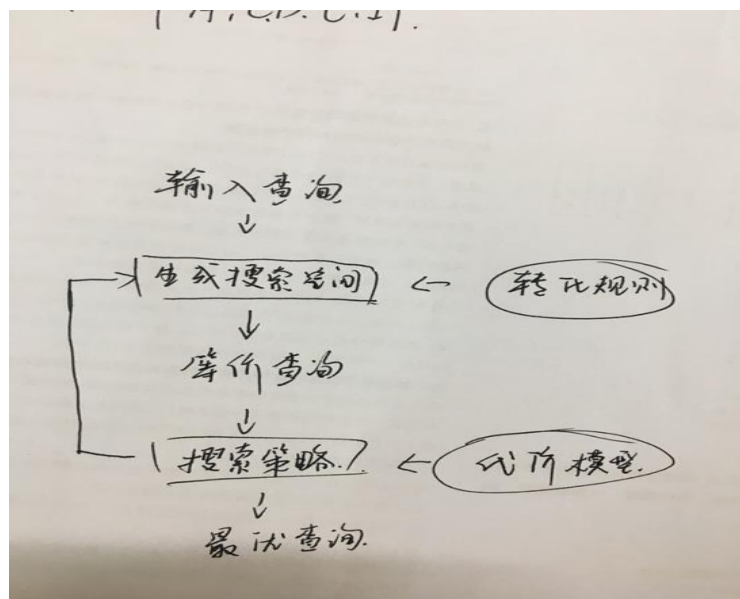 输入查询
生成搜索空间 转化规则
等价查询
搜索策略 代价模型
最优查询